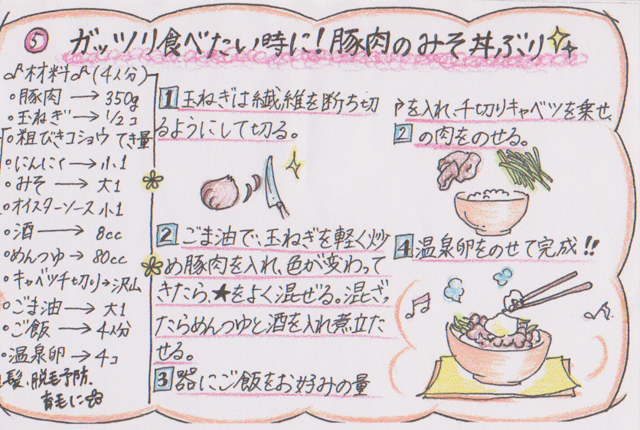 ⑤ ガッツリ食べたい時に!豚肉のみそ丼ぶり
材料(4人分)
豚肉→350g
玉ねぎ→1/2コ
粗びきコショウ てき量
にんにく→小1
みそ→大1
オイスターソース 小1
酒→8cc
めんつゆ→80cc
キャベツ千切り→沢山
ごま油→大1
ご飯→4人分
温泉卵→4コ
髪、脱毛予防、
育毛に
1 玉ねぎは繊維を断ち切
るようにして切る。
2 ごま油で、玉ねぎを軽く炒
め豚肉を入れ、色が変わって
きたら、★をよく混ぜる。混ざっ
たらめんつゆと酒を入れ煮立た
せる。
3 器にご飯をお好みの量
を入れ、千切りキャベツを乗せ、
2 の肉をのせる。
4 温泉卵をのせて完成!!